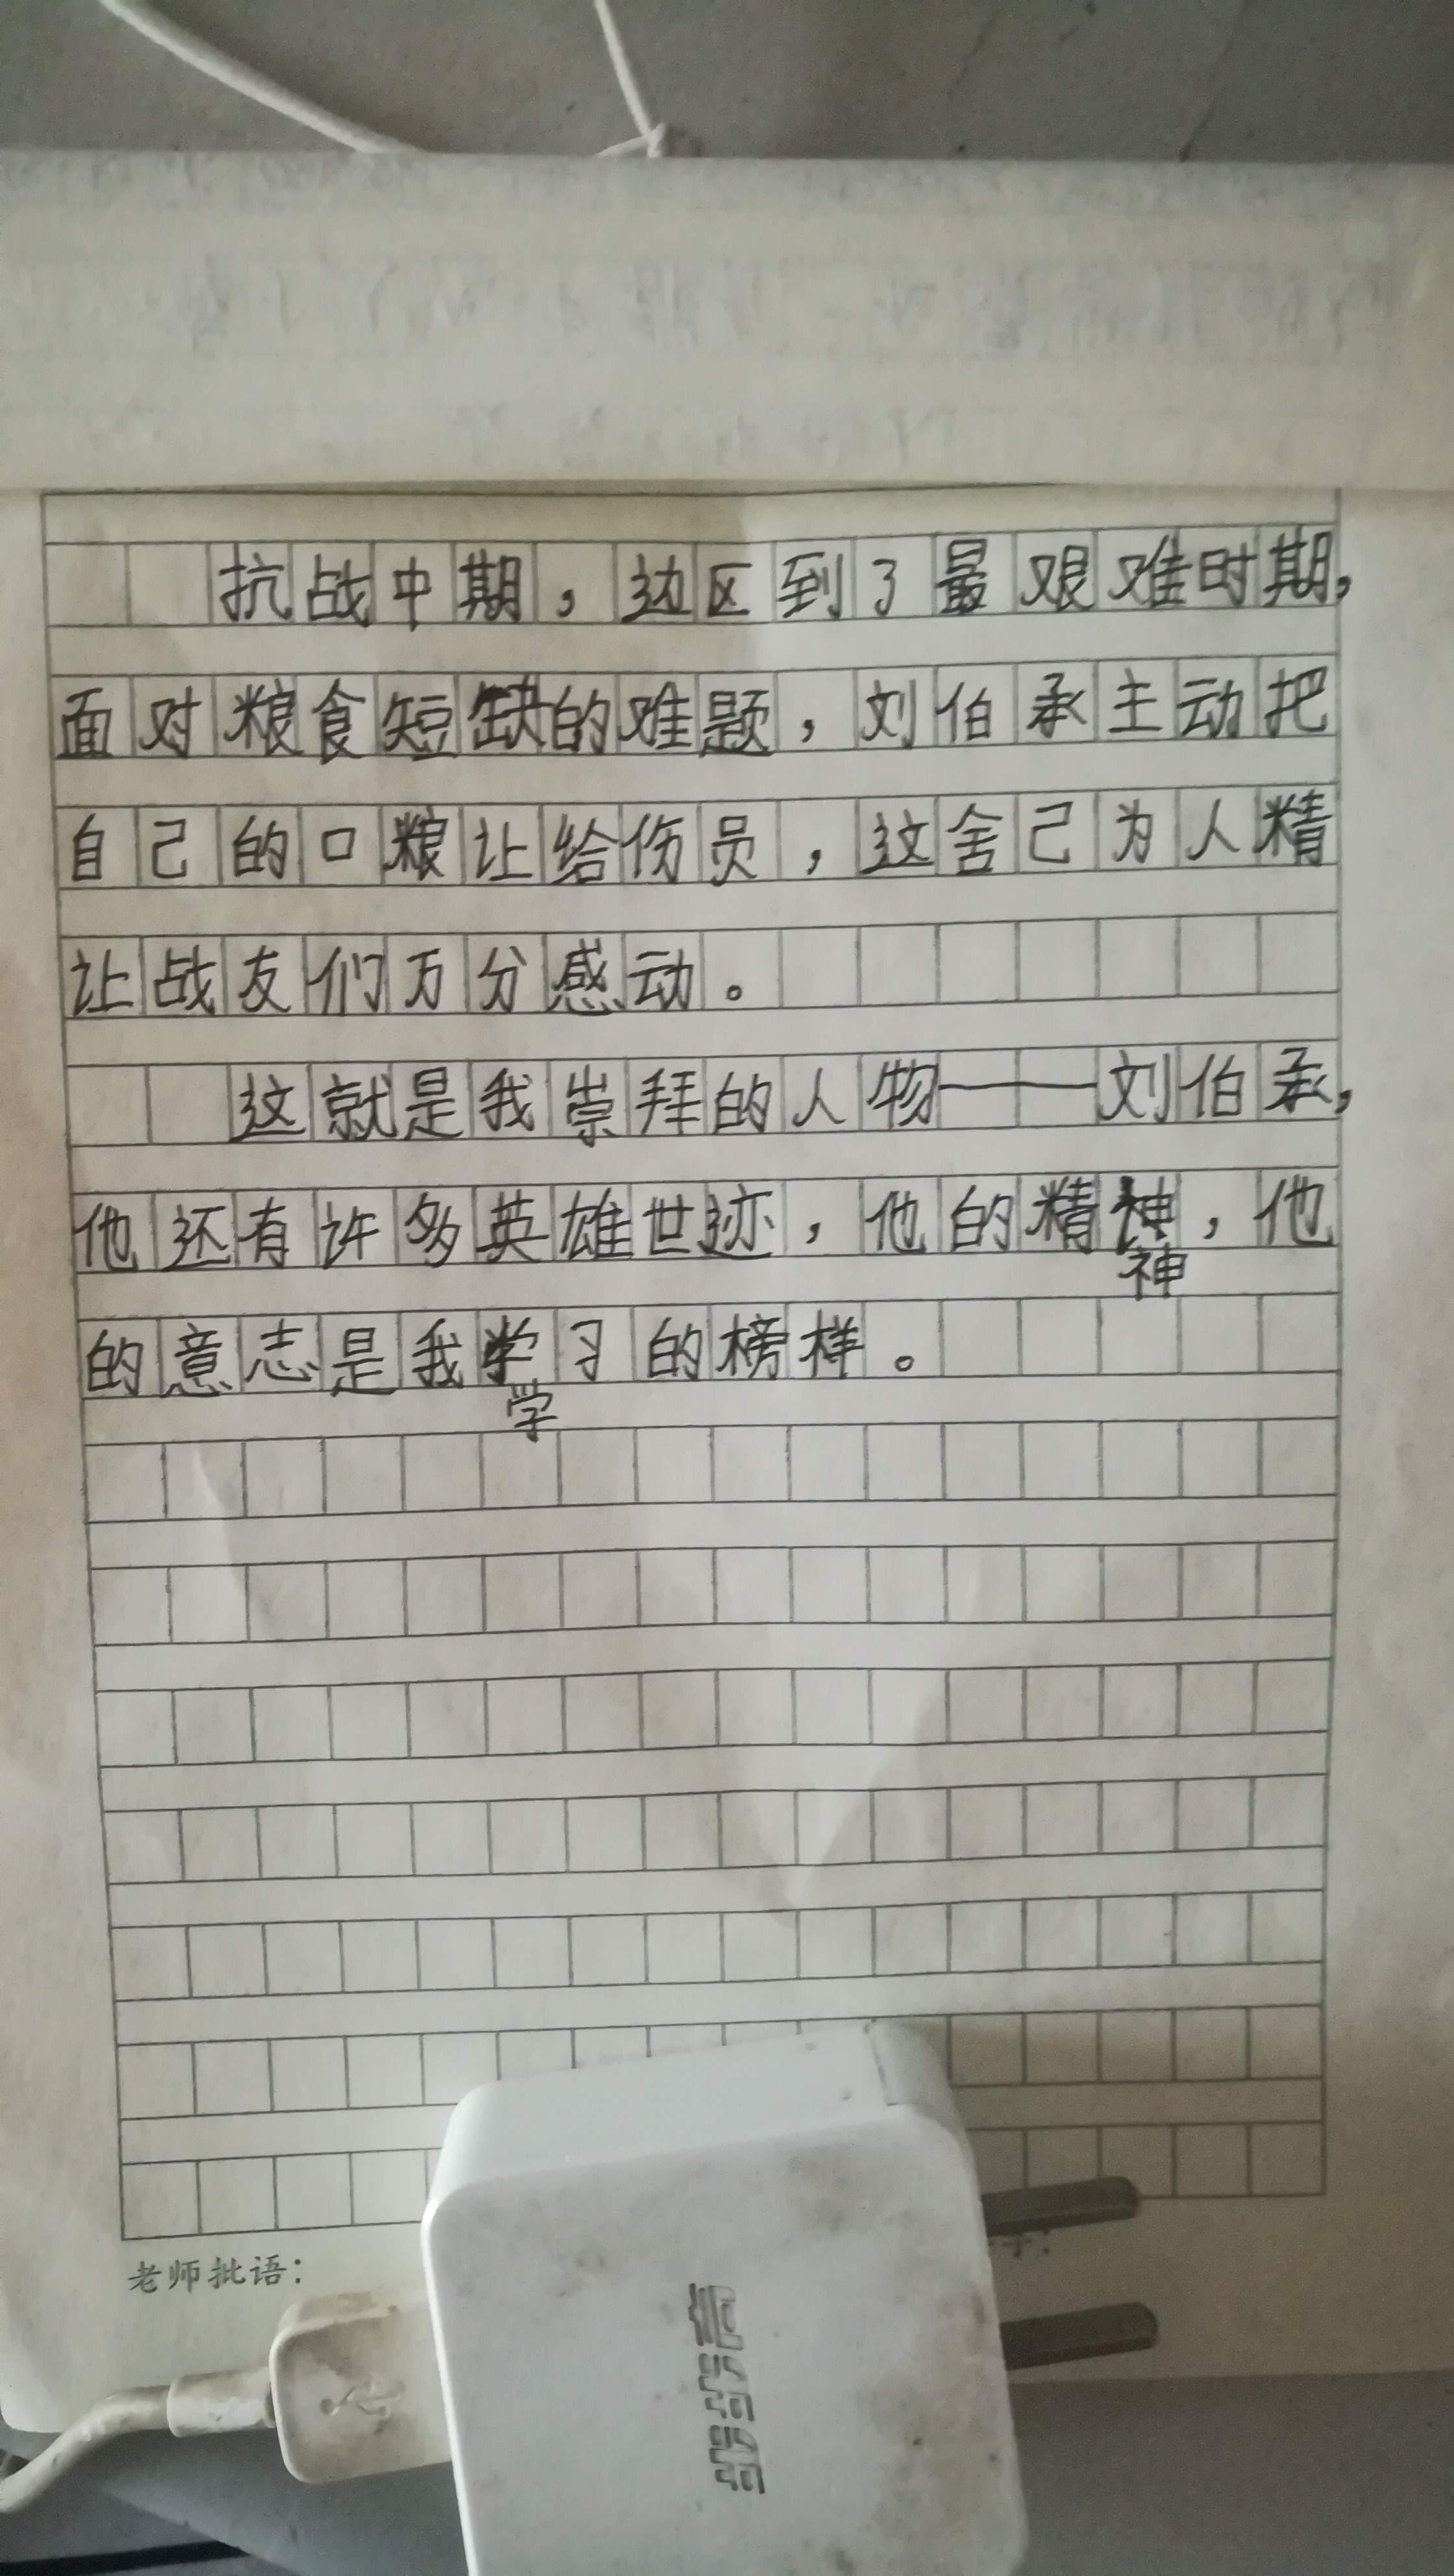 抗战中期，边区到了最艰难时期，
面对粮食短缺的难题，刘伯承主动把
自己的口粮让给伤员，这舍己为人精
让战友们万分感动。
这就是我崇拜的人物——刘伯承，
他还有许多英雄世迹，他的精神，他
神
的意志是我学习的榜样。
学
老师批语：
步步高